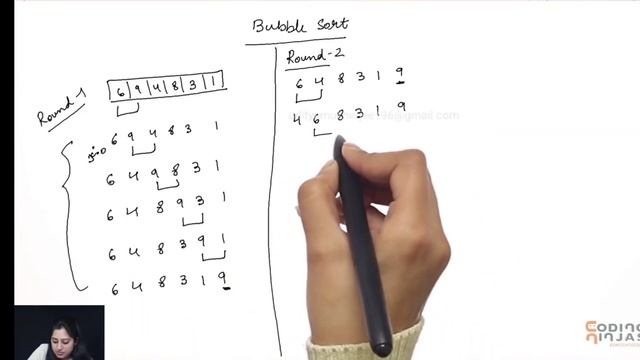 Bubble Sort
Round 1
6 9 4 8 3 1
i=0 6 9 4 8 3 1
6 4 9 8 3 1
6 4 8 9 3 1
6 4 8 3 9 1
6 4 8 3 1 9
Round-2
6 4 8 3 1 9
4 6 8 3 1 9
CODING
NINJAS